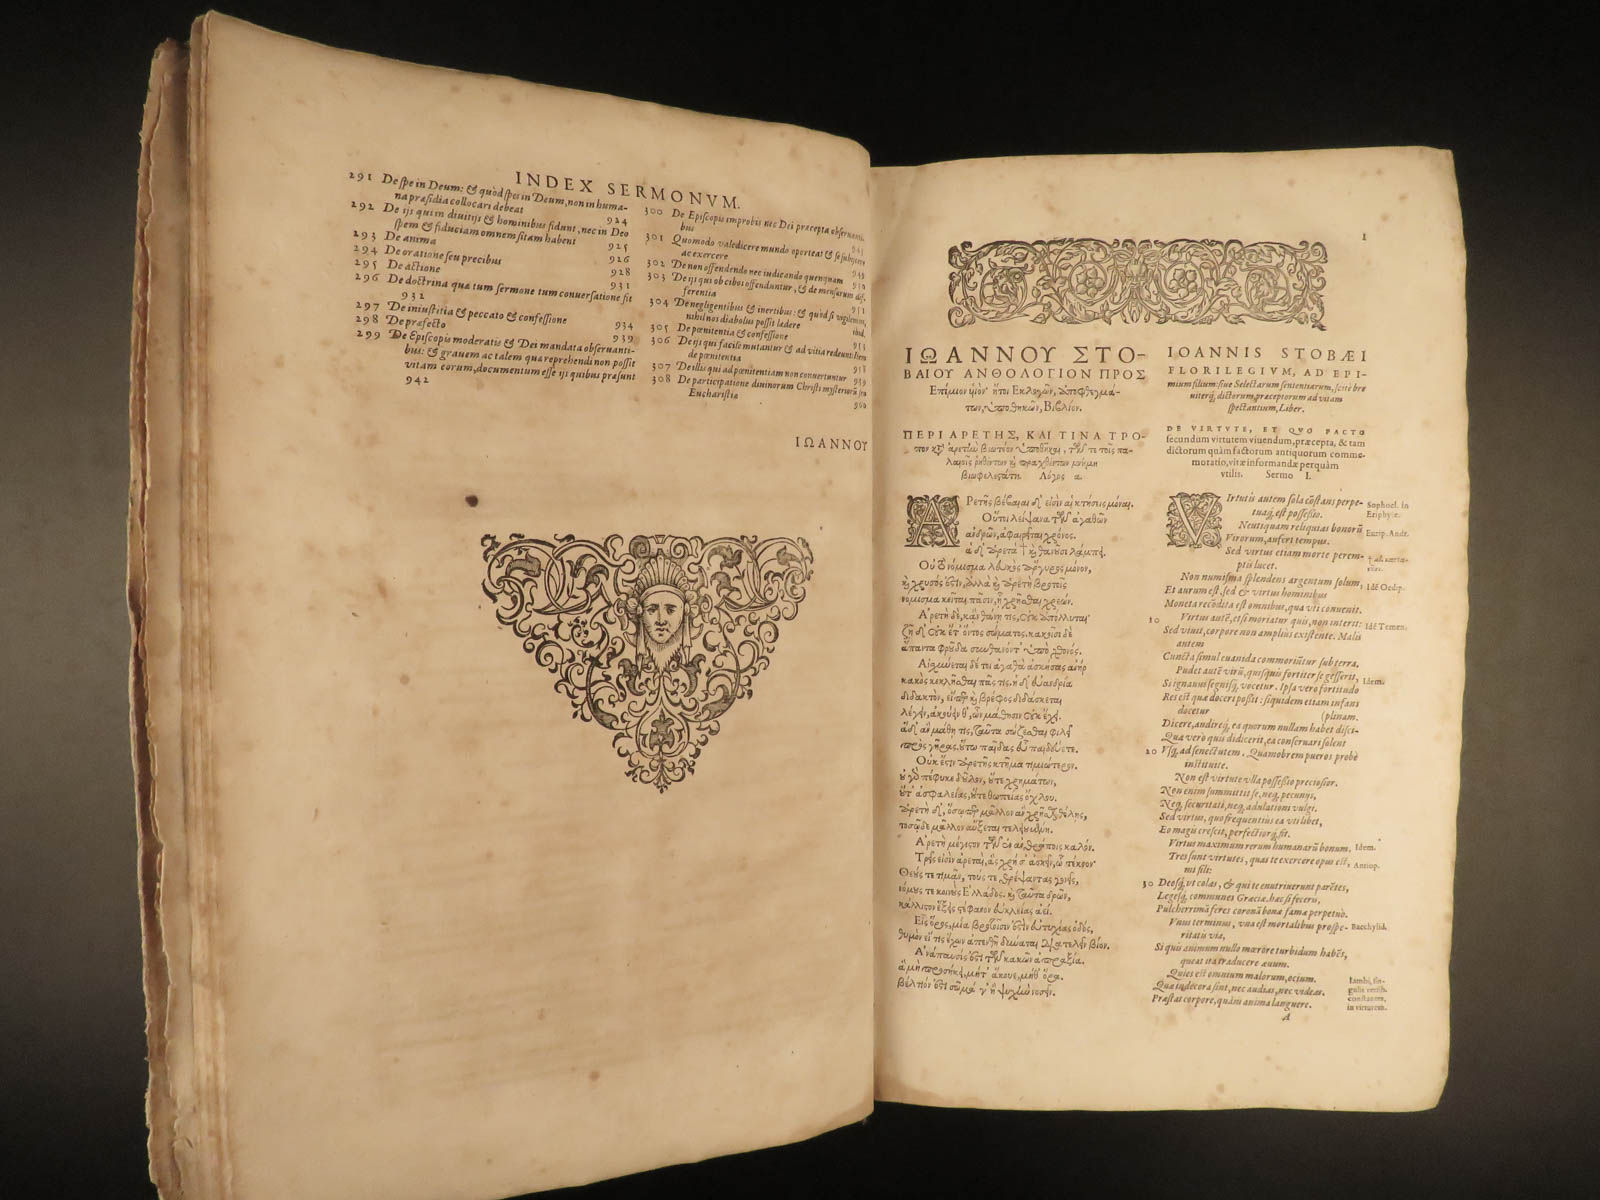 INDEX SERMONVM.
291 De spe in Deum: & quòd spes in Deum, non in huma-
na præsidia collocari debeat 924
292 De ijs qui in diuitijs & hominibus fidunt, nec in Deo
spem & fiduciam omnem sitam habent 925
293 De anima 926
294 De oratione seu precibus 928
295 De actione 931
296 De doctrina quæ tum sermone tum conuersatione fit
932
297 De iniustitia & peccato & confessione 934
298 De præfecto 939
299 De Episcopis moderatis & Dei mandata obseruanti-
bus: & grauem ac talem qua reprehendi non possit
vitam eorum, documentum esse ijs quibus præsunt
942
300 De Episcopis improbis nec Dei præcepta obseruanti-
bus
301 Quomodo valedicere mundo oporteat & se
ac exercere
302 De non offendendo nec iudicando quenquam
303 De ijs qui ob cibos offenduntur, & de mensarum dif-
ferentia 951
304 De negligentibus & inertibus: & quòd si vigilemus,
nihil nos diabolus possit lædere ibid.
305 De pœnitentia & confessione 953
306 De ijs qui facilè mutantur & ad vitia redeunt: Item
de pœnitentia 958
307 De illis qui ad pœnitentiam non conuertuntur 959
308 De participatione diuinorum Christi mysteriorũ seu
Eucharistia 960
ΙΩΑΝΝΟΥ
1
ΙΩΑΝΝΟΥ ΣΤΟ-
ΒΑΙΟΥ ΑΝΘΟΛΟΓΙΟΝ ΠΡΟΣ
Ἐπίμιον υἱὸν· ἤτοι Ἐκλογῶν, ἀποφθεγμά-
των, ὑποθηκῶν, Βιβλίον.
ΠΕΡΙ ΑΡΕΤΗΣ, ΚΑΙ ΤΙΝΑ ΤΡΟ-
πον κατ' ἀρετὴν βιωτέον ὑποθῆκαι, τῶν τε τοῖς πα-
λαιοῖς ῥηθέντων καὶ πραχθέντων μνήμη
βιωφελεστάτη. Λόγος α.
ΑΡετῆς βέβαιαι δ' εἰσὶν αἱ κτήσεις μόναι.
Οὔτοι λείψανα τῶν ἀγαθῶν
ἀνδρῶν, ἀφαιρεῖται χρόνος.
ἁ δ' ἀρετὰ † καὶ θανοῦσι λάμπει.
Οὐ νόμισμα λευκὸς ἄργυρος μόνον,
καὶ χρυσός ἐστιν, ἀλλὰ καὶ ἀρετὴ βροτοῖς
νόμισμα κεῖται πᾶσιν, ᾗ χρῆσθαι χρεών.
Ἀρετὴ δὲ, κᾂν θάνῃ τις, οὐκ ἀπόλλυται·
ζῇ δ' οὐκ ἔτ' ὄντος σώματος. κακοῖσι δὲ
ἅπαντα φροῦδα συνθανόνθ' ὑπὸ χθονός.
Αἰσχύνεται δέ τοι ἀγαθὰ ἀσκήσας ἀνὴρ
κακὸς κεκλῆσθαι πᾶς τις, ἡ δ' εὐανδρία
διδακτὸν, εἴπερ καὶ βρέφος διδάσκεται
λέγειν, ἀκούειν θ', ὧν μάθησιν οὐκ ἔχει.
ἃ δ' ἂν μάθῃ τις, ταῦτα σώζεσθαι φιλεῖ
πρὸς γῆρας. οὕτω παῖδας εὖ παιδεύετε.
Οὐκ ἔστιν ἀρετῆς κτῆμα τιμιώτερον.
οὐ γὰρ πέφυκε δοῦλον, οὔτε χρημάτων,
οὔτ' ἀσφαλείας, οὔτε θωπείας ὄχλου.
ἀρετὴ δ', ὅσωπερ μᾶλλον ἂν χρῆσθαι θέλῃς,
τοσῷδε μᾶλλον αὔξεται τελειουμένη.
Ἀρετὴ μέγιστον τῶν ἐν ἀνθρώποις καλόν.
Τρεῖς εἰσὶν ἀρεταὶ, ἃς χρή σ' ἀσκεῖν, ὦ τέκνον·
Θεούς τε τιμᾷν, τούς τε θρέψαντας γονεῖς,
νόμους τε κοινοὺς Ἑλλάδος. καὶ ταῦτα δρῶν,
κάλλιστον ἕξεις στέφανον εὐκλείας ἀεί.
Εἷς ὅρος, μία βροτοῖσίν ἐστιν εὐτυχίας ὁδός,
θυμὸν εἴ τις ἔχων ἀπενθῆ δύναται διατελεῖν βίον.
Ἀνάπαυσίς ἐστι τῶν κακῶν ἀπραξία.
ἃ μὴ προσήκει, μήτ' ἄκουε, μήθ' ὅρα.
Βέλτιόν ἐστι σῶμά γ' ἢ ψυχὴν νοσεῖν.
IOANNIS STOBÆI
FLORILEGIVM, AD EPI-
mium filium: siue Selectarum sententiarum, scitè bre
uiterq́, dictorum, præceptorum ad vitam
spectantium, Liber.
DE VIRTVTE, ET QVO PACTO
secundum virtutem viuendum, præcepta, & tam
dictorum quàm factorum antiquorum comme-
moratio, vitæ informandæ perquàm
vtilis. Sermo I.
VIrtutis autem sola cõstans perpe- Sophocl. in
tuaq́, est possessio. Eriphyle.
Neutiquam reliquias bonorũ
Virorum, aufert tempus. Eurip. Andr.
Sed virtus etiam morte perem-
ptis lucet.
Non numisma splendens argentum solum, Idẽ Oedip.
Et aurum est, sed & virtus hominibus
Moneta recõdita est omnibus, qua vti conuenit.
10 Virtus autẽ, etsi moriatur quis, non interit: Idẽ Temen.
Sed viuit, corpore non amplius existente. Malis
autem
Cuncta simul euanida commoriũtur sub terra.
Pudet autẽ virũ, quisquis fortiter se gesserit, Idem.
Si ignauus se quisq́, vocetur. Ipsa vero fortitudo
Res est quæ doceri possit: siquidem etiam infans
docetur (plinam.
Dicere, audireq́, ea quorum nullam habet disci-
Quæ verò quis didicerit, ea conseruari solent
20 Vsq́, ad senectutem. Quamobrem pueros probè
instituite.
Non est virtute vlla possessio preciosior.
Non enim summittit se, neq́, pecunijs,
Neq́, securitati, neq́, adulationi vulgi.
Sed virtus, quo frequentius ea vti libet,
Eo magis crescit, perfectiorq́, fit.
Virtus maximum rerum humanarũ bonum. Idem.
Tres sunt virtutes, quas te exercere opus est, Antiop.
mi fili:
30 Deosq́, vt colas, & qui te enutriuerunt parẽtes,
Legesq́, communes Græciæ. hæc si feceris,
Pulcherrimã feres coronã bonæ famæ perpetuò.
Vnus terminus, vna est mortalibus prospe- Bacchylid.
ritatis via,
Si quis animum nullo mœrore turbidum habẽs,
queat ita traducere æuum.
Quies est omnium malorum, ocium. Iambi, sin-
Quæ indecora sint, nec audias, nec videas. gulis versib.
Præstat corpore, quàm anima languere. constantes,
in virtutem.
A